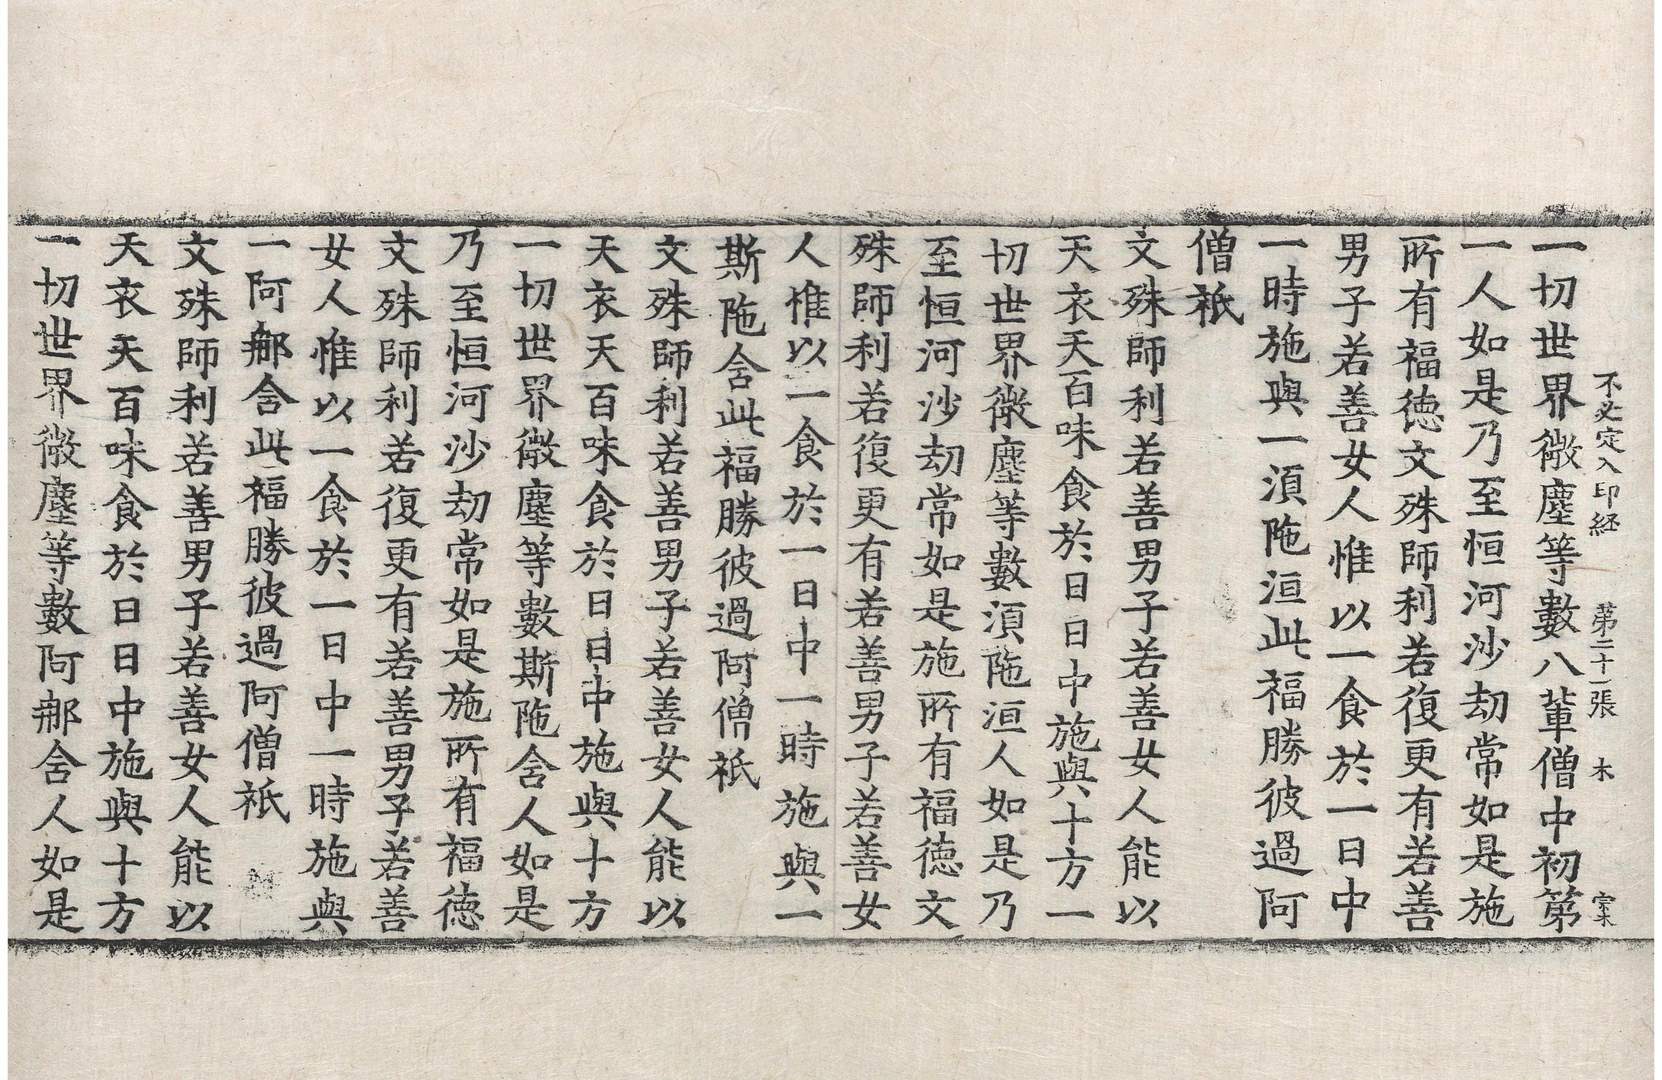 不必定入印経　第二十一張　木　宗木
一切世界微塵等數八輩僧中初第
一人如是乃至恒河沙劫常如是施
所有福徳文殊師利若復更有若善
男子若善女人惟以一食於一日中
一時施與一湏陁洹此福勝彼過阿
僧祇
文殊師利若善男子若善女人能以
天衣天百味食於日日中施與十方一
切世界微塵等數湏陁洹人如是乃
至恒河沙劫常如是施所有福徳文
殊師利若復更有若善男子若善女
人惟以一食於一日中一時施與一
斯陁含此福勝彼過阿僧祇
文殊師利若善男子若善女人能以
天衣天百味食於日日中施與十方
一切世界微塵等數斯陁含人如是
乃至恒河沙劫常如是施所有福徳
文殊師利若復更有若善男子若善
女人惟以一食於一日中一時施與
一阿那含此福勝彼過阿僧祇
文殊師利若善男子若善女人能以
天衣天百味食於日日中施與十方
一切世界微塵等數阿那含人如是